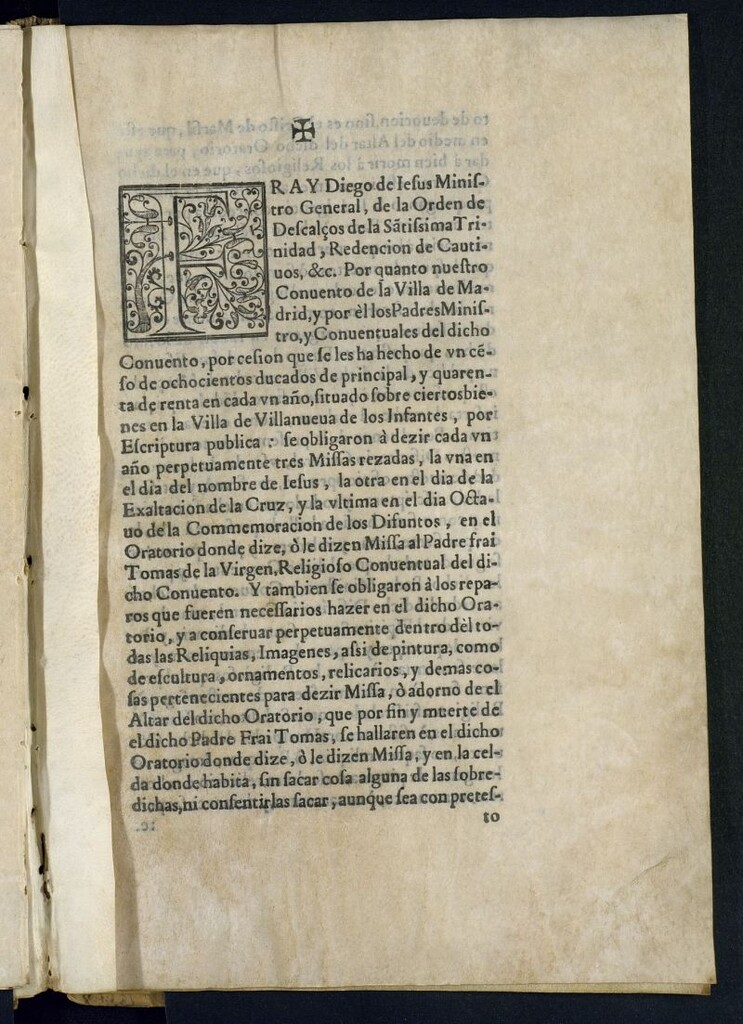 ✠
FRAY Diego de Iesus Minis-
tro General, de la Orden de
Descalços de la Sãtissima Tri-
nidad, Redencion de Cauti-
uos, &c. Por quanto nuestro
Conuento de la Villa de Ma-
drid, y por èl los Padres Minis-
tro, y Conuentuales del dicho
Conuento, por cesion que se les ha hecho de vn cẽ-
so de ochocientos ducados de principal, y quaren-
ta de renta en cada vn año, situado sobre ciertos bie-
nes en la Villa de Villanueua de los Infantes, por
Escriptura publica: se obligaron à dezir cada vn
año perpetuamente tres Missas rezadas, la vna en
el dia del nombre de Iesus, la otra en el dia de la
Exaltacion de la Cruz, y la vltima en el dia Octa-
uo de la Commemoracion de los Difuntos, en el
Oratorio donde dize, ò le dizen Missa al Padre frai
Tomas de la Virgen, Religioso Conuentual del di-
cho Conuento. Y tambien se obligaron à los repa-
ros que fueren necessarios hazer en el dicho Ora-
torio, y a conseruar perpetuamente dentro dèl to-
das las Reliquias, Imagenes, assi de pintura, como
de escultura, ornamentos, relicarios, y demas co-
sas pertenecientes para dezir Missa, ò adorno de el
Altar del dicho Oratorio, que por fin y muerte de
el dicho Padre Frai Tomas, se hallaren en el dicho
Oratorio donde dize, ò le dizen Missa, y en la cel-
da donde habita, sin sacar cosa alguna de las sobre-
dichas, ni consentirlas sacar, aunque sea con pretes-
to